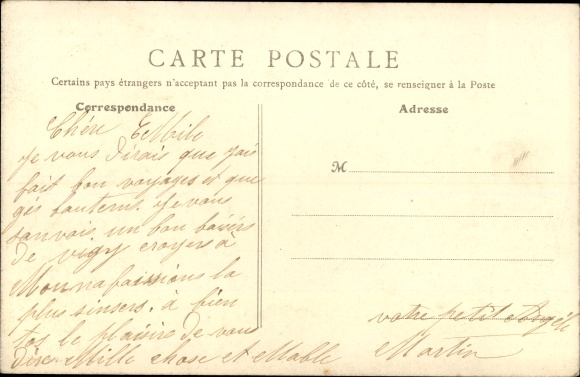 CARTE POSTALE
Certains pays étrangers n'acceptant pas la correspondance de ce côté, se renseigner à la Poste
Correspondance
Adresse
M
Chére EMbile
Je vous dirais que jais
fait bon voyages et que
gés bautems. Je vous
sanvois un bon baisérs
de vigy croyers à
Mon nafaissions la
plus sinsers. à bien
tos le plaisire de vous
dire Mille chose et Mable
votre petit Angéle
Martin